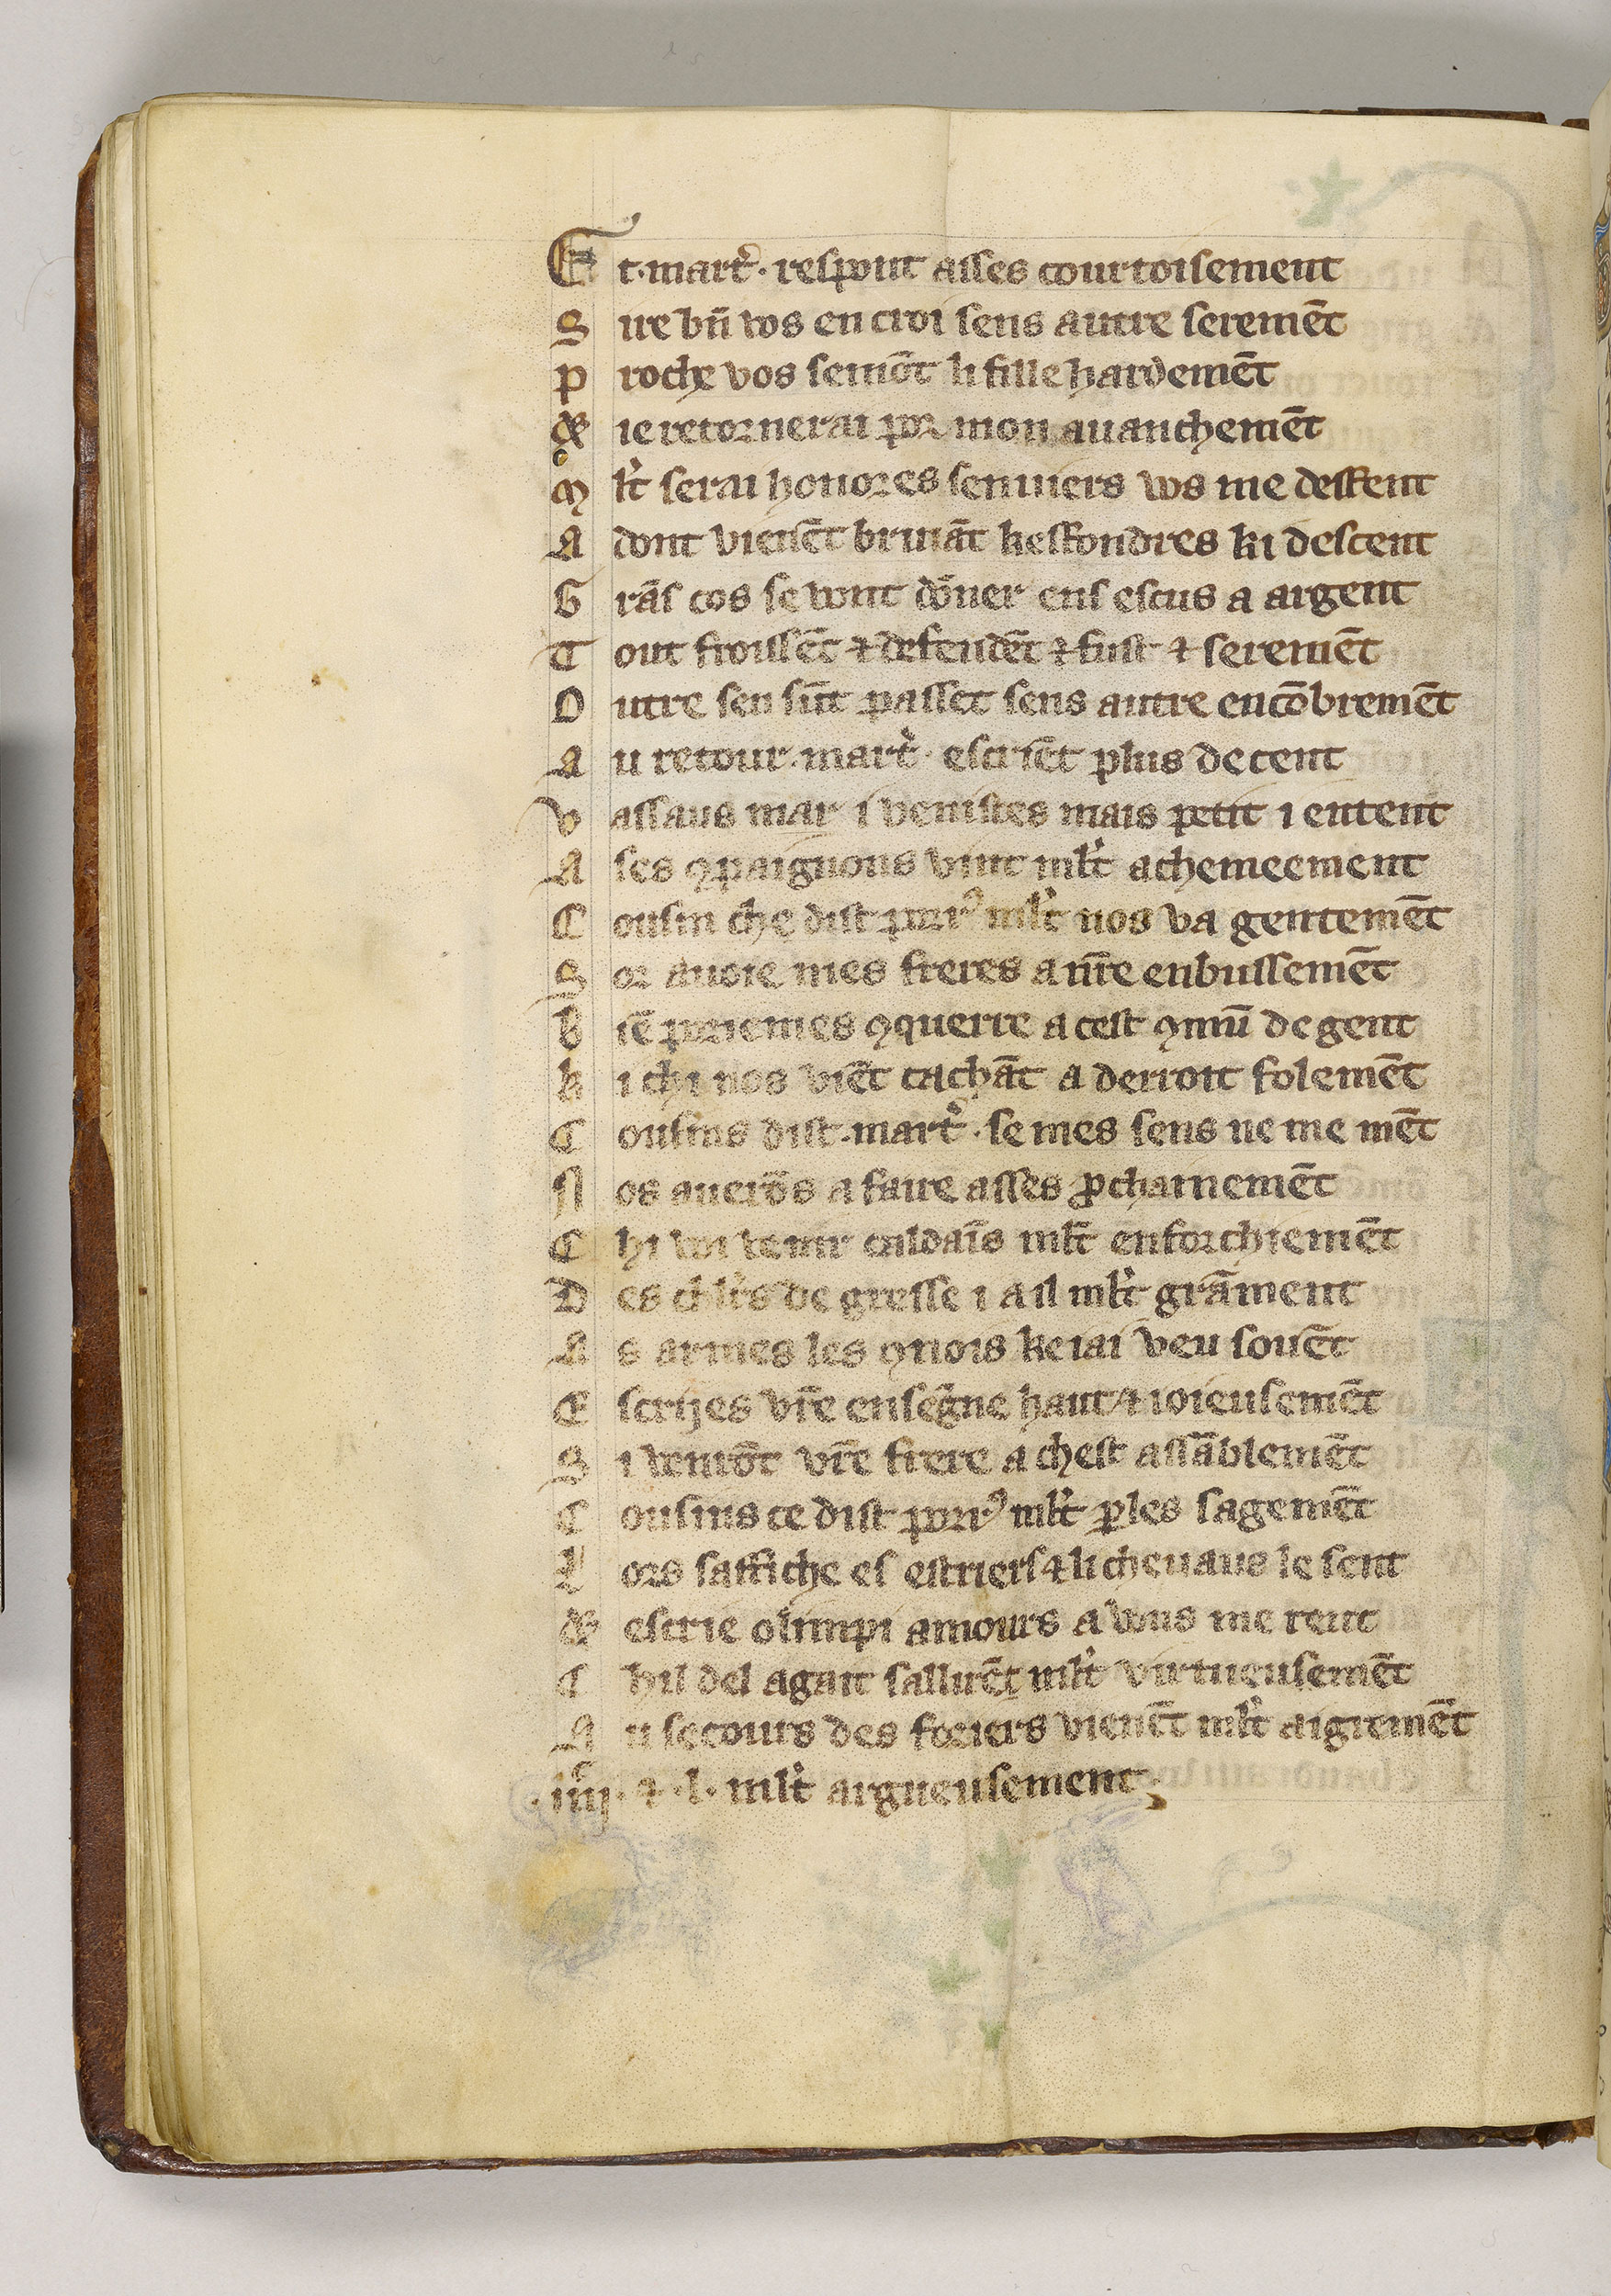 Et · mart̉ · respont asses courtoisement
Sire bn̄ vos en croi sens autre seremēt
Proche vos semōt li fille hardemēt
& ie retornerai por mon auanchemēt
Ml̉t serai honores senuiers vos me deffent
Adont vienēt bruiāt keffondres ki descent
Grās cos se vont dōner ens escus a argent
Tout froissēt ⁊ desendēt ⁊ fust ⁊ seremēt
Outre sen sūt passet sens autre encōbremēt
Au retour · mart̉ · escriēt plus de cent
Vassaus mar i venistes mais petit i entent
A ses ꝯpaignons vint ml̉t achemeement
Cousin che dist porꝰ ml̉t nos va gentemēt
Sor auoie mes freres a nr̄e enbussemēt
Biē poriemes ꝯquerre a cest ꝯmū de gent
Ki chi nos viēt cachāt a derroit folemēt
Cousins dist · mart̉ · se mes sens ne me mēt
Nos auerōs a faire asses ꝓchainemēt
Chi voi venir caldaīs ml̉t enforchiemēt
Des chl̉rs de gresse i a il ml̉t grāment
As armes les ꝯnois ke iai veu souēt
Escrijes vr̄e ensēgne haut ⁊ ioieusemēt
Si venrōt vr̄e frere a chest assāblemēt
Cousins ce dist porꝰ ml̉t ꝑles sagemēt
Lors saffiche es estriers ⁊ li cheuaus le sent
& escrie olimpi amours a vous me rent
Chil del agait sallirēt ml̉t virtueusemēt
Au secours des foriers vienēt ml̉t aigremēt
· iiijᶜ · ⁊ · l · ml̉t argueusement